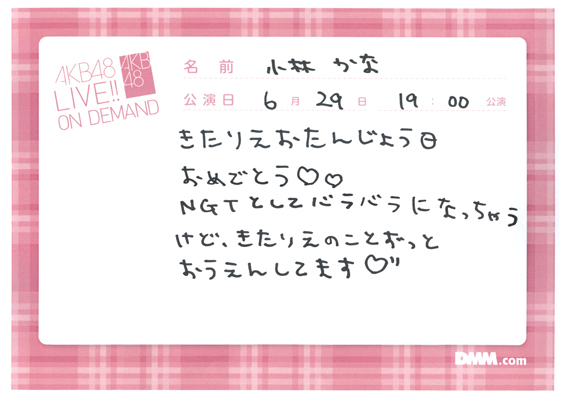 AKB48
LIVE!!
ON DEMAND
AKB
48
名前 小林 かな
公演日 6月 29日 19:00 公演
きたりえおたんじょう日
おめでとう♡♡
NGTとしてバラバラになっちゃう
けど、きたりえのことずっと
おうえんしてます♡"
DMM.com